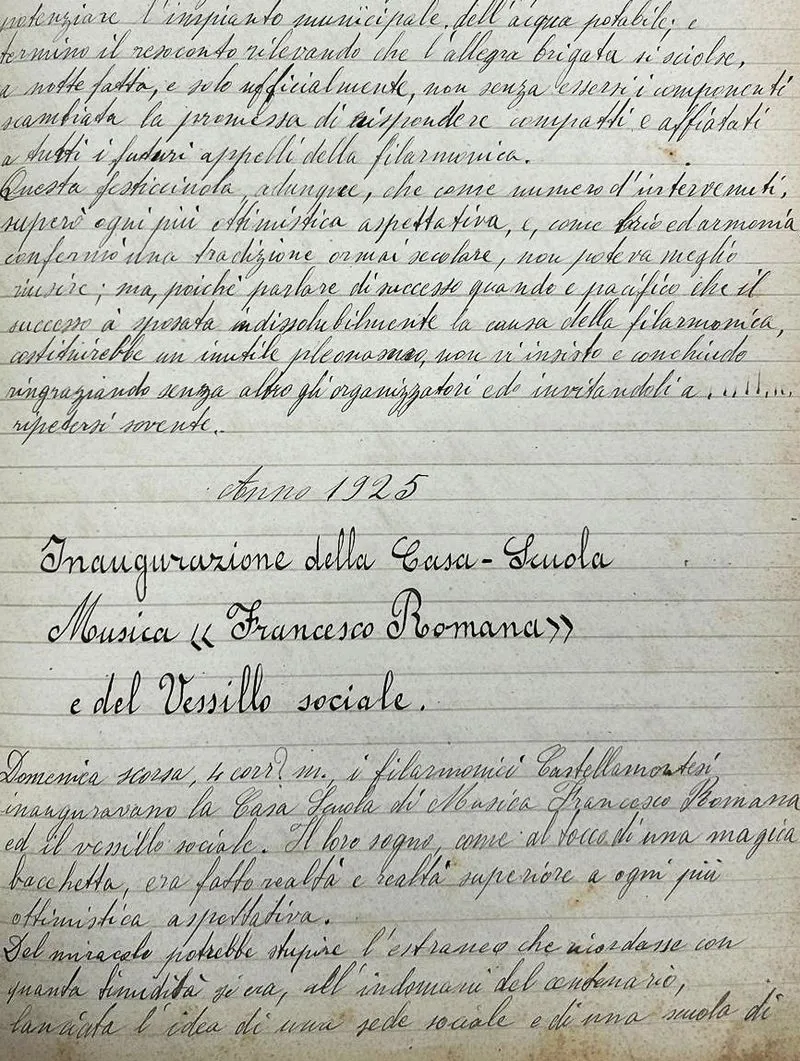 potenziare l'impianto municipale dell'acqua potabile; e
termino il resoconto rilevando che l'allegra brigata si sciolse,
a notte fatta, e solo ufficialmente, non senza essersi i componenti
scambiata la promessa di rispondere compatti e affiatati
a tutti i futuri appelli della filarmonica.
Questa festicciuola, adunque, che come numero d'intervenuti,
superò ogni più ottimistica aspettativa, e, come brio ed armonia
confermò una tradizione ormai secolare, non poteva meglio
riusire; ma, poichè parlare di successo quando è pacifico che il
successo à sposata indissolubilmente la causa della filarmonica,
costituirebbe un inutile pleonasmo, non vi insisto e conchiudo
ringraziando senza altro gli organizzatori ed invitandoli a ........
ripetersi sovente..
Anno 1925
Inaugurazione della Casa-Scuola
Musica « Francesco Romana»
e del Vessillo sociale.
Domenica scorsa, 4 corr. m., i filarmonici Castellamontesi
inauguravano la Casa Scuola di Musica Francesco Romana
ed il vessillo sociale. Il loro sogno, come al tocco di una magica
bacchetta, era fatto realtà e realtà superiore a ogni più
ottimistica aspettativa.
Del miracolo potrebbe stupire l'estraneo che ricordasse con
quanta timidità si era, all'indomani del centenario,
lanciata l'idea di una sede sociale e di una scuola di